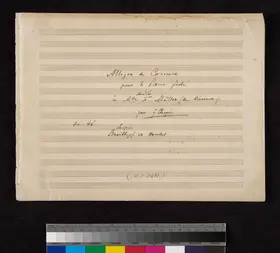 Allegro de Concert
pour le Piano forte
dédié
à Mlle F. Müller (de Vienne)
par F. Chopin
Oe. 46
Leipzic
Breitkopf et Härtel